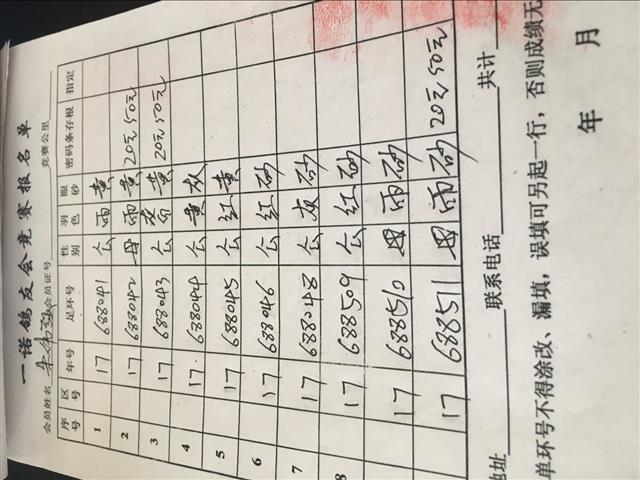 一诺鸽友会竞赛报名单
会员姓名 会员证号 竞赛公里
序号 区号 年号 足环号 性别 羽色 眼砂 密码条存根 指定
1 17 688041 公 雨 黄
2 17 688042 母 雨 黄 20元50元
3 17 688043 公 黄 20元50元
4 17 688044 公 黄
5 17 688045 公 红 黄
6 17 688046 公 红 砂
7 17 688048 公 灰 砂
8 17 688509 公 红 砂
17 688510 母 雨 砂
17 688511 母 雨 砂 20元50元
地址 联系电话 共计
单环号不得涂改、漏填，误填可另起一行，否则成绩无
年 月